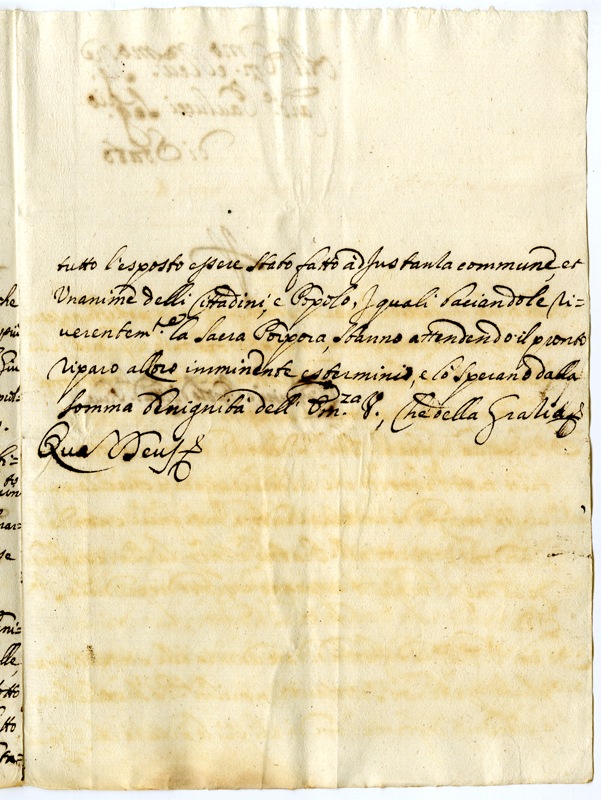 tutto l'esposto essere stato fatto ad Justantia commune, et
Unanime delli Cittadini, e Popolo, I quali baciandole ri-
verentem.te la Sacra Porpora, stanno attendendo il pronto
riparo al loro imminente esterminio, e lo sperano dalla
somma benignità dell' Em.za V., Che della Gratia
Qua Deus